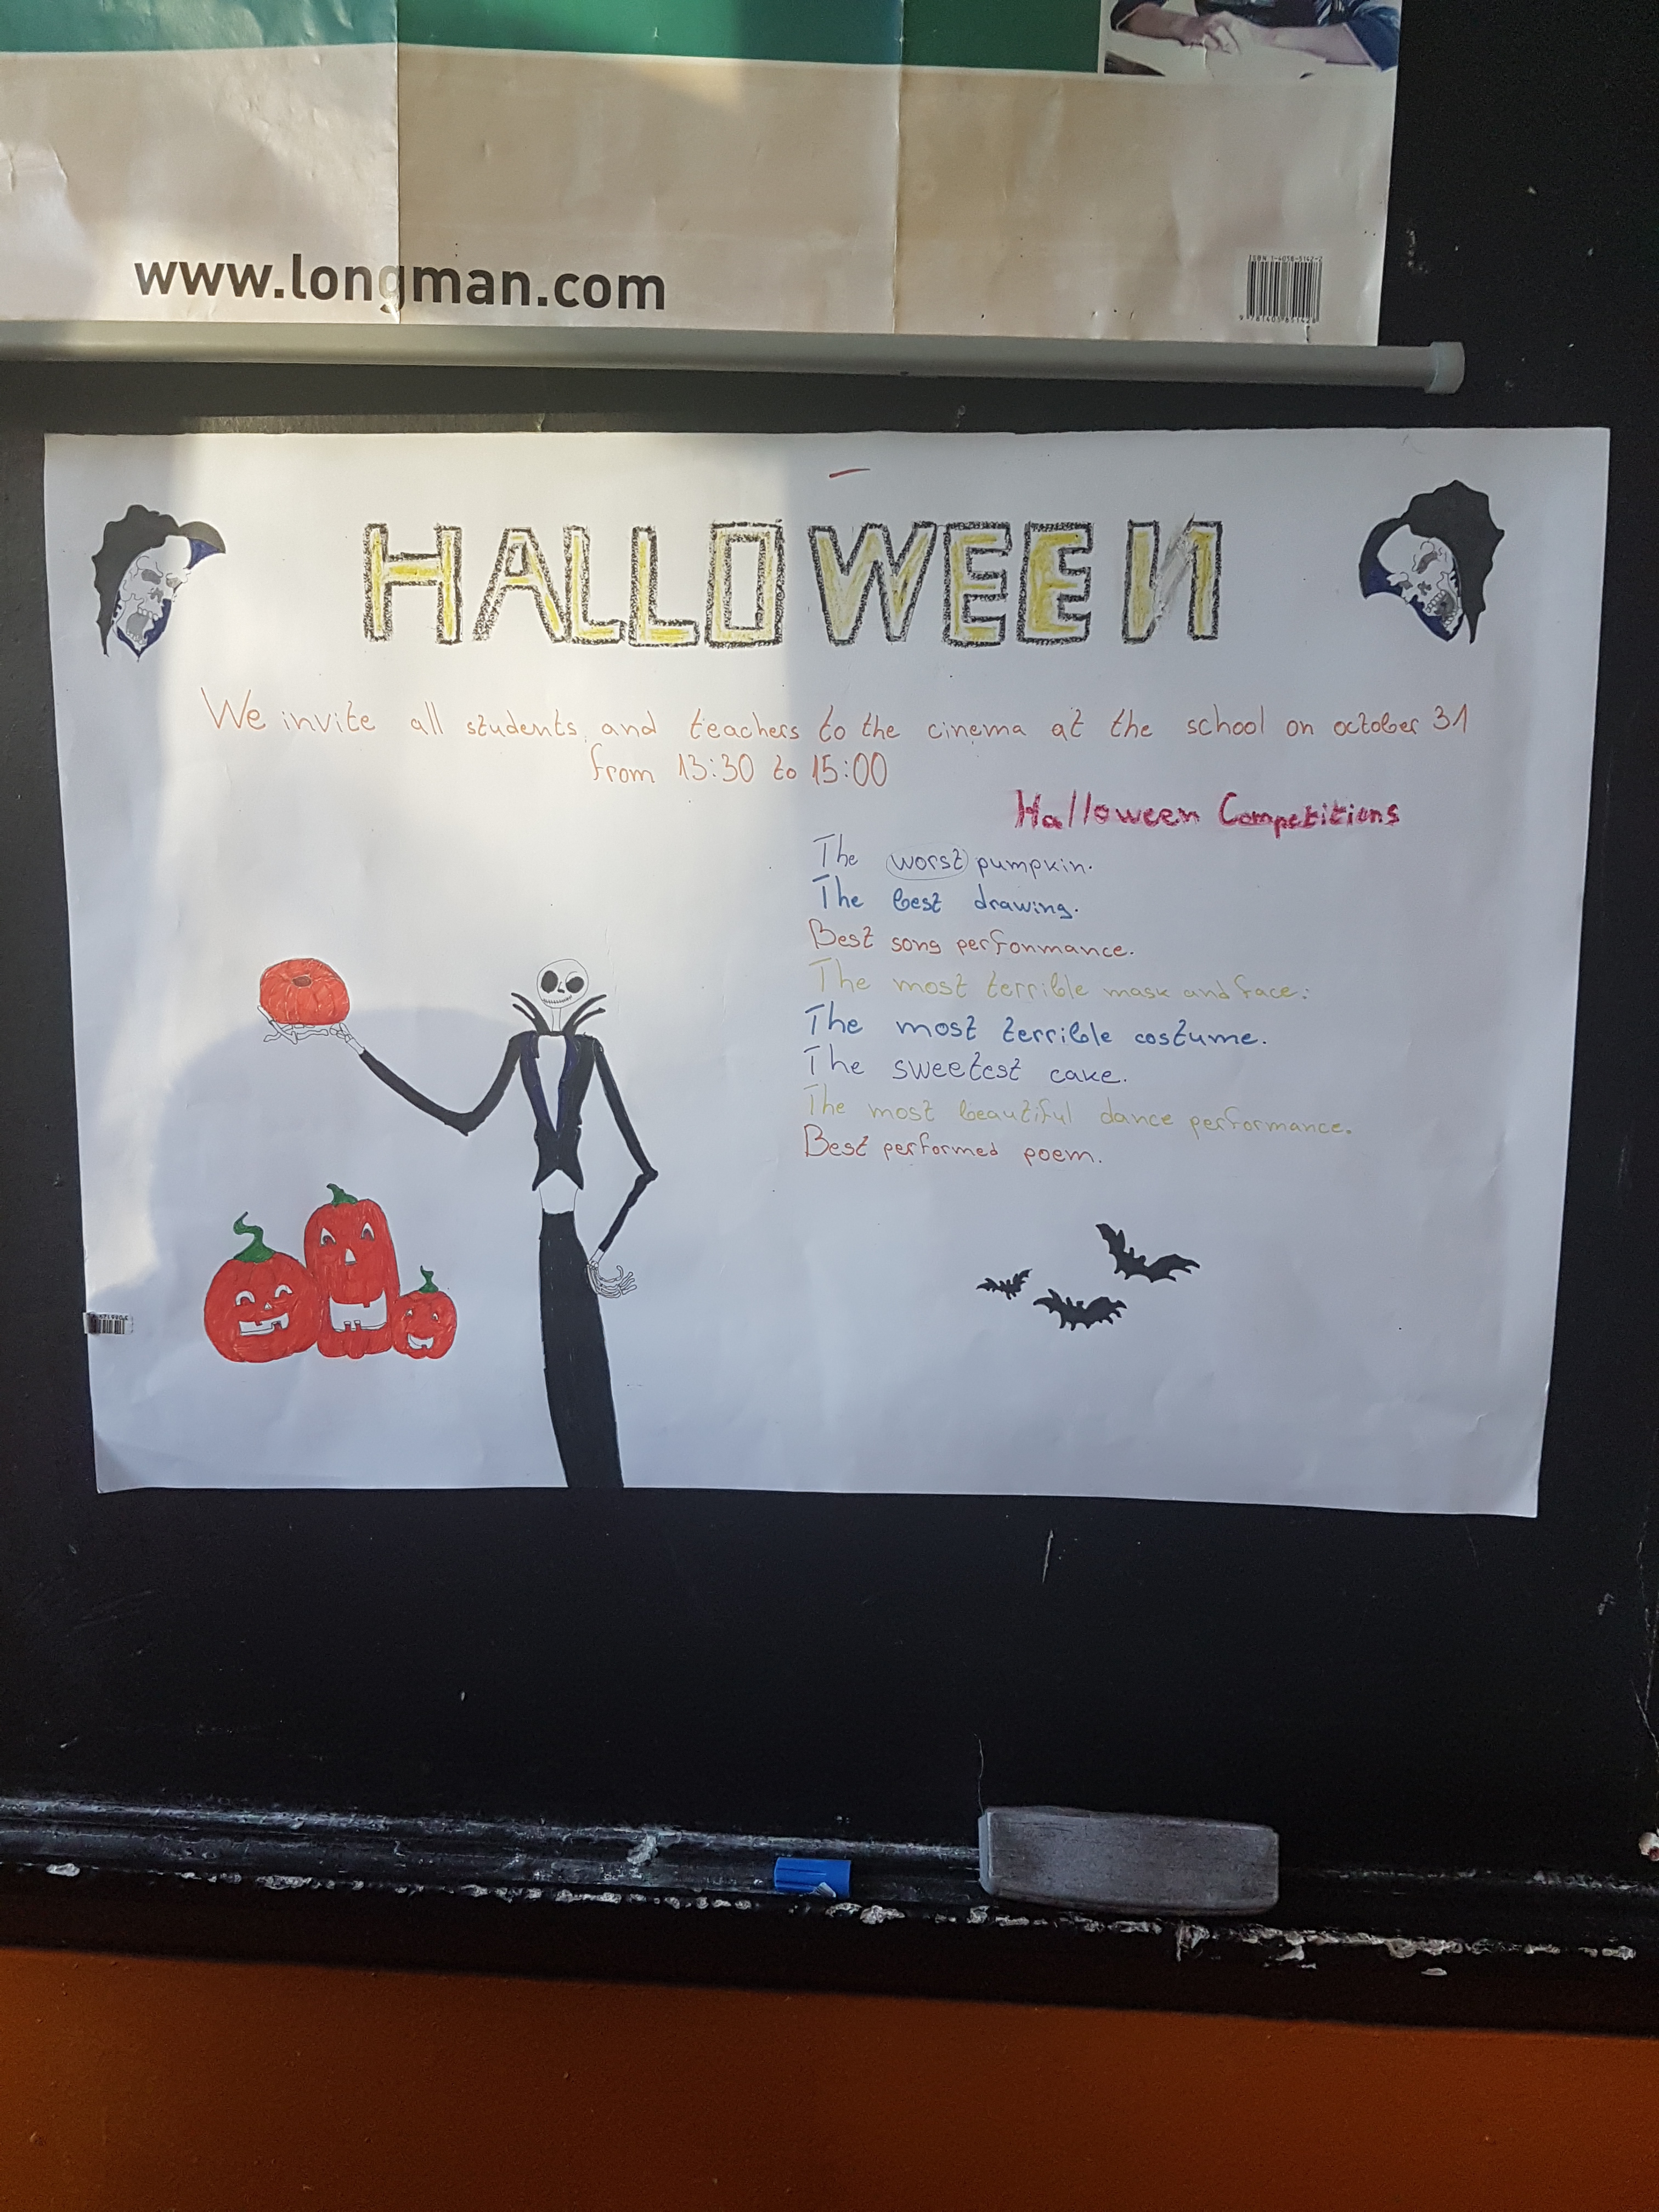 www.longman.com
ISBN 1-4058-5142-2
9 781405 851428
HALLOWEEN
We invite all students and teachers to the cinema at the school on october 31
from 13:30 to 15:00
Halloween Competitions
The worst pumpkin.
The best drawing.
Best song perfonmance.
The most terrible mask and face.
The most terrible costume.
The sweetest cake.
The most beautiful dance performance.
Best performed poem.